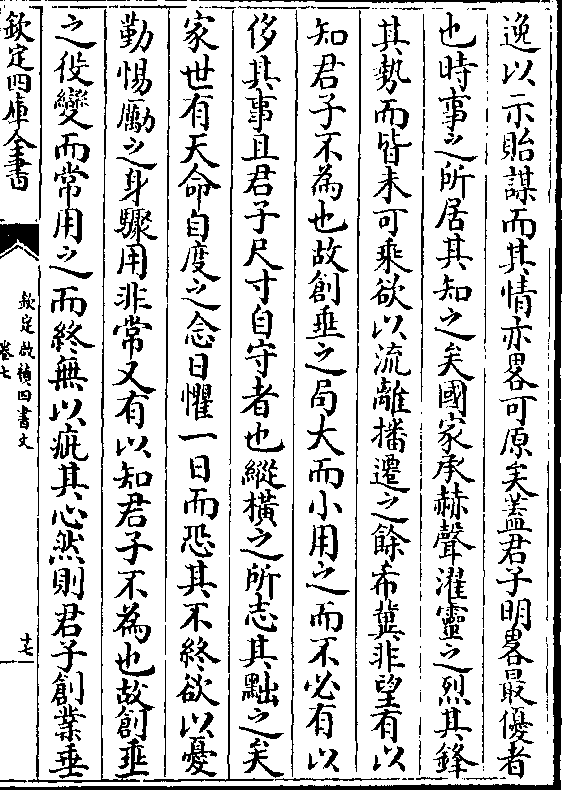 逸以示貽謀而其情亦畧可原矣蓋君子明畧最優者
也時事之所居其知之矣國家承赫聲濯靈之烈其鋒
其勢而皆未可乘欲以流離播遷之餘希冀非望有以
知君子不為也故創垂之局大而小用之而不必有以
侈其事且君子尺寸自守者也縱橫之所志其黜之矣
家世有天命自度之念日懼一日而恐其不終欲以憂
勤惕厲之身驟用非常又有以知君子不為也故創垂
之役變而常用之而終無以疵其心然則君子創業垂
欽定四庫全書
欽定啟禎四書文
卷七
十七